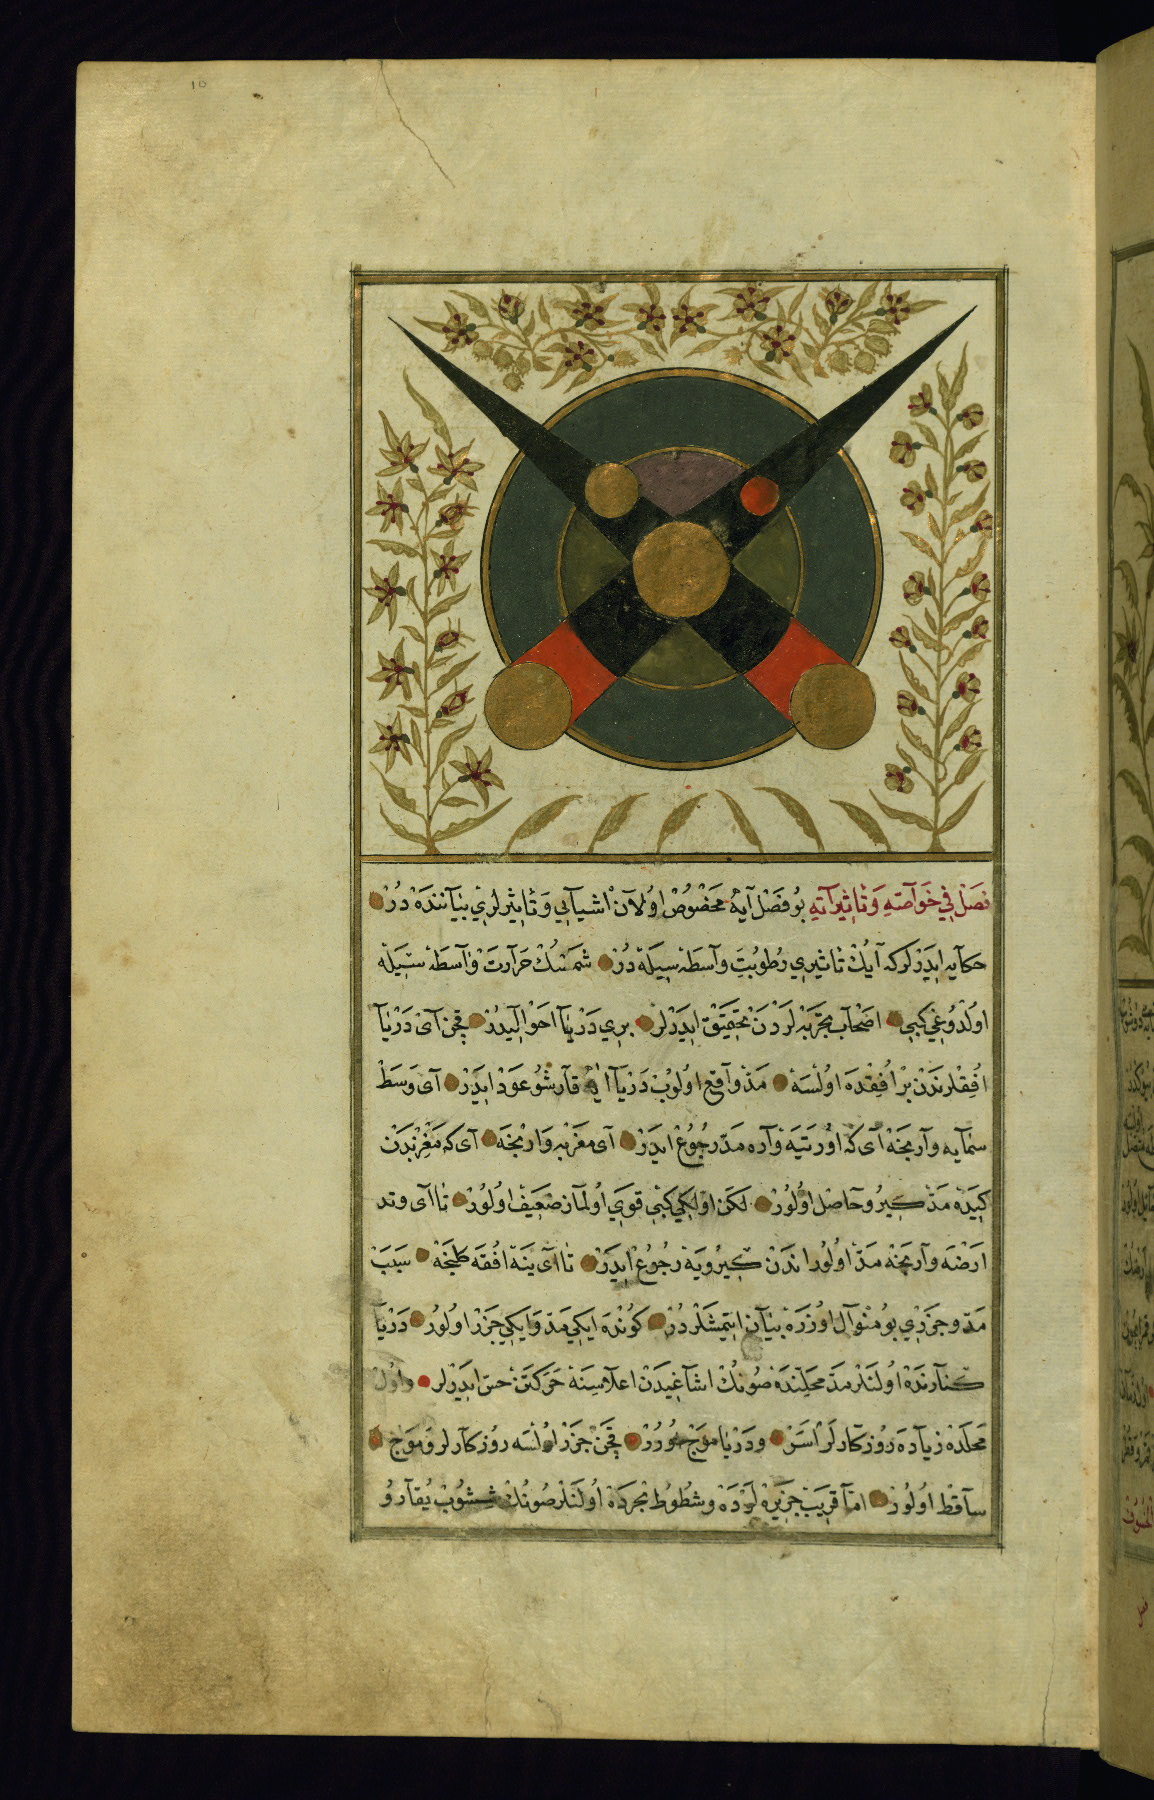 10
فَصْل فِي خَوَاصِّهِ وَتَاثِيرَاتِهِ بُو فَصْل آيه مَخْصُوصْ اوُلَانْ اشيايي وَتَاثِيرلري بيآننده دُرْ
حكايه ايدَرْلركه آيكْ تاثيري رُطوبَت واسطه سيله دُرْ شمسك حرارت واسطه سيله
اولدوغي كبي اصْحاب تجربه لردن تحقيق ايدَرْلَرْ بري دَرْيَا احوالِيدُرْ قچن آي دَرْيَا
افُقلرندن بر افُقده اولسه مدّ واقع اولوبْ دَرْيَا ايه قارشو عود ايدَرْ آي وسط
سمايه وارىجه آي كه اورتيه واره مدّ رجوع ايدَرْ آي مغربه وارىجه آي كه مغربدن
كيده مدّ كيرو حاصل اولورْ لكن اولكي كبي قوي اولماز ضعيف اولورْ تا آي وتد
ارضه وارىجه مدّ اولور اندن كيرويه رجوع ايدَرْ تا آي ينه افُقه كلىجه سبب
مدّ وجزري بو منوال اوزره بيان ايتمشلردُرْ كونده ايكي مدّ وايكي جزر اولورُ دَرْيَا
كنارنده اولنلر مدّ محلنده صونك اشاغيدن اعلاسنه حركتن حس ايدرلر واولْ
محلده زياده روزكارلر اسر ودريا موج اورُرْ قچن جزر اولسه روزكارلر وموج
ساقط اولورْ اما قريب جزيره لرده وشطوط بحرده اولنلر صونك شيشوب يقارو